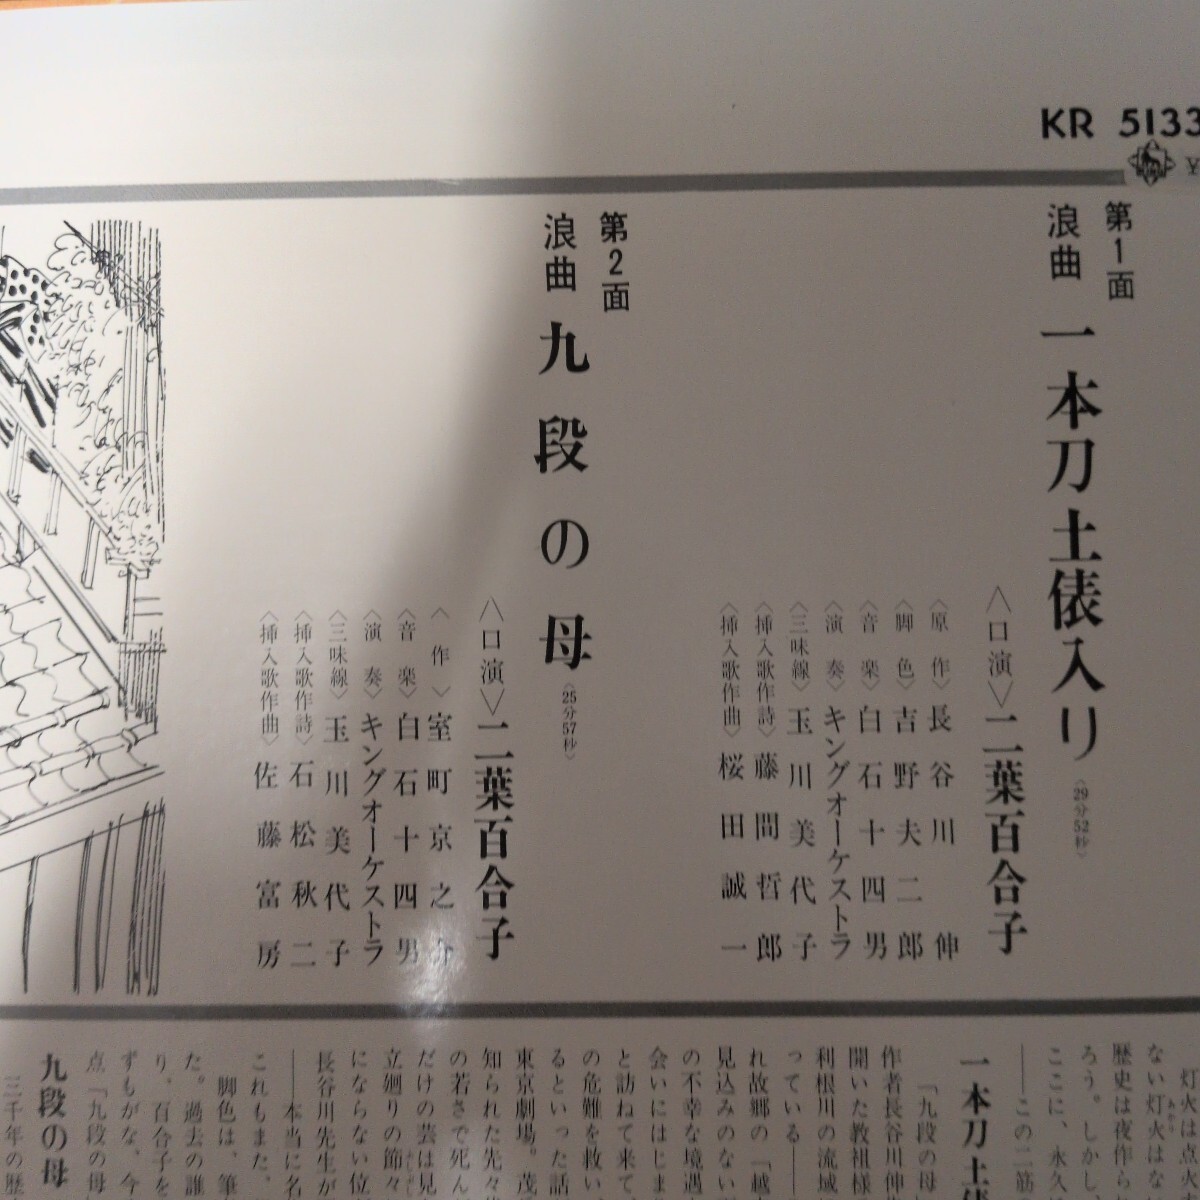 KR 5133
第1面
浪曲 一本刀土俵入り〈29分52秒〉
〈口演〉二葉百合子
〈原作〉長谷川伸
〈脚色〉吉野夫二郎
〈音楽〉白石十四男
〈演奏〉キングオーケストラ
〈三味線〉玉川美代子
〈挿入歌作詩〉藤間哲郎
〈挿入歌作曲〉桜田誠一
第2面
浪曲 九段の母〈25分57秒〉
〈口演〉二葉百合子
〈作〉室町京之介
〈音楽〉白石十四男
〈演奏〉キングオーケストラ
〈三味線〉玉川美代子
〈挿入歌作詩〉石松秋二
〈挿入歌作曲〉佐藤富房
灯火は点火
ない灯火はな
歴史は夜作ら
ろう。しかし
ここに、永久
――この二筋
一本刀土俵
「九段の母
作者長谷川伸
開いた教祖様
利根川の流域
っている――
れ故郷の「越
見込みのない
の不幸な境遇
会いにはじま
と訪ねて来て
の危難を救い
るといった話
東京劇場。茂
知られた先々
の若さで死ん
だけの芸は見
立廻りの節々
にならない位
長谷川先生が
――本当に名
これもまた、
脚色は、筆
た。過去の誰
り、百合子を
ずもがな、今
点「九段の母
九段の母
三千年の歴